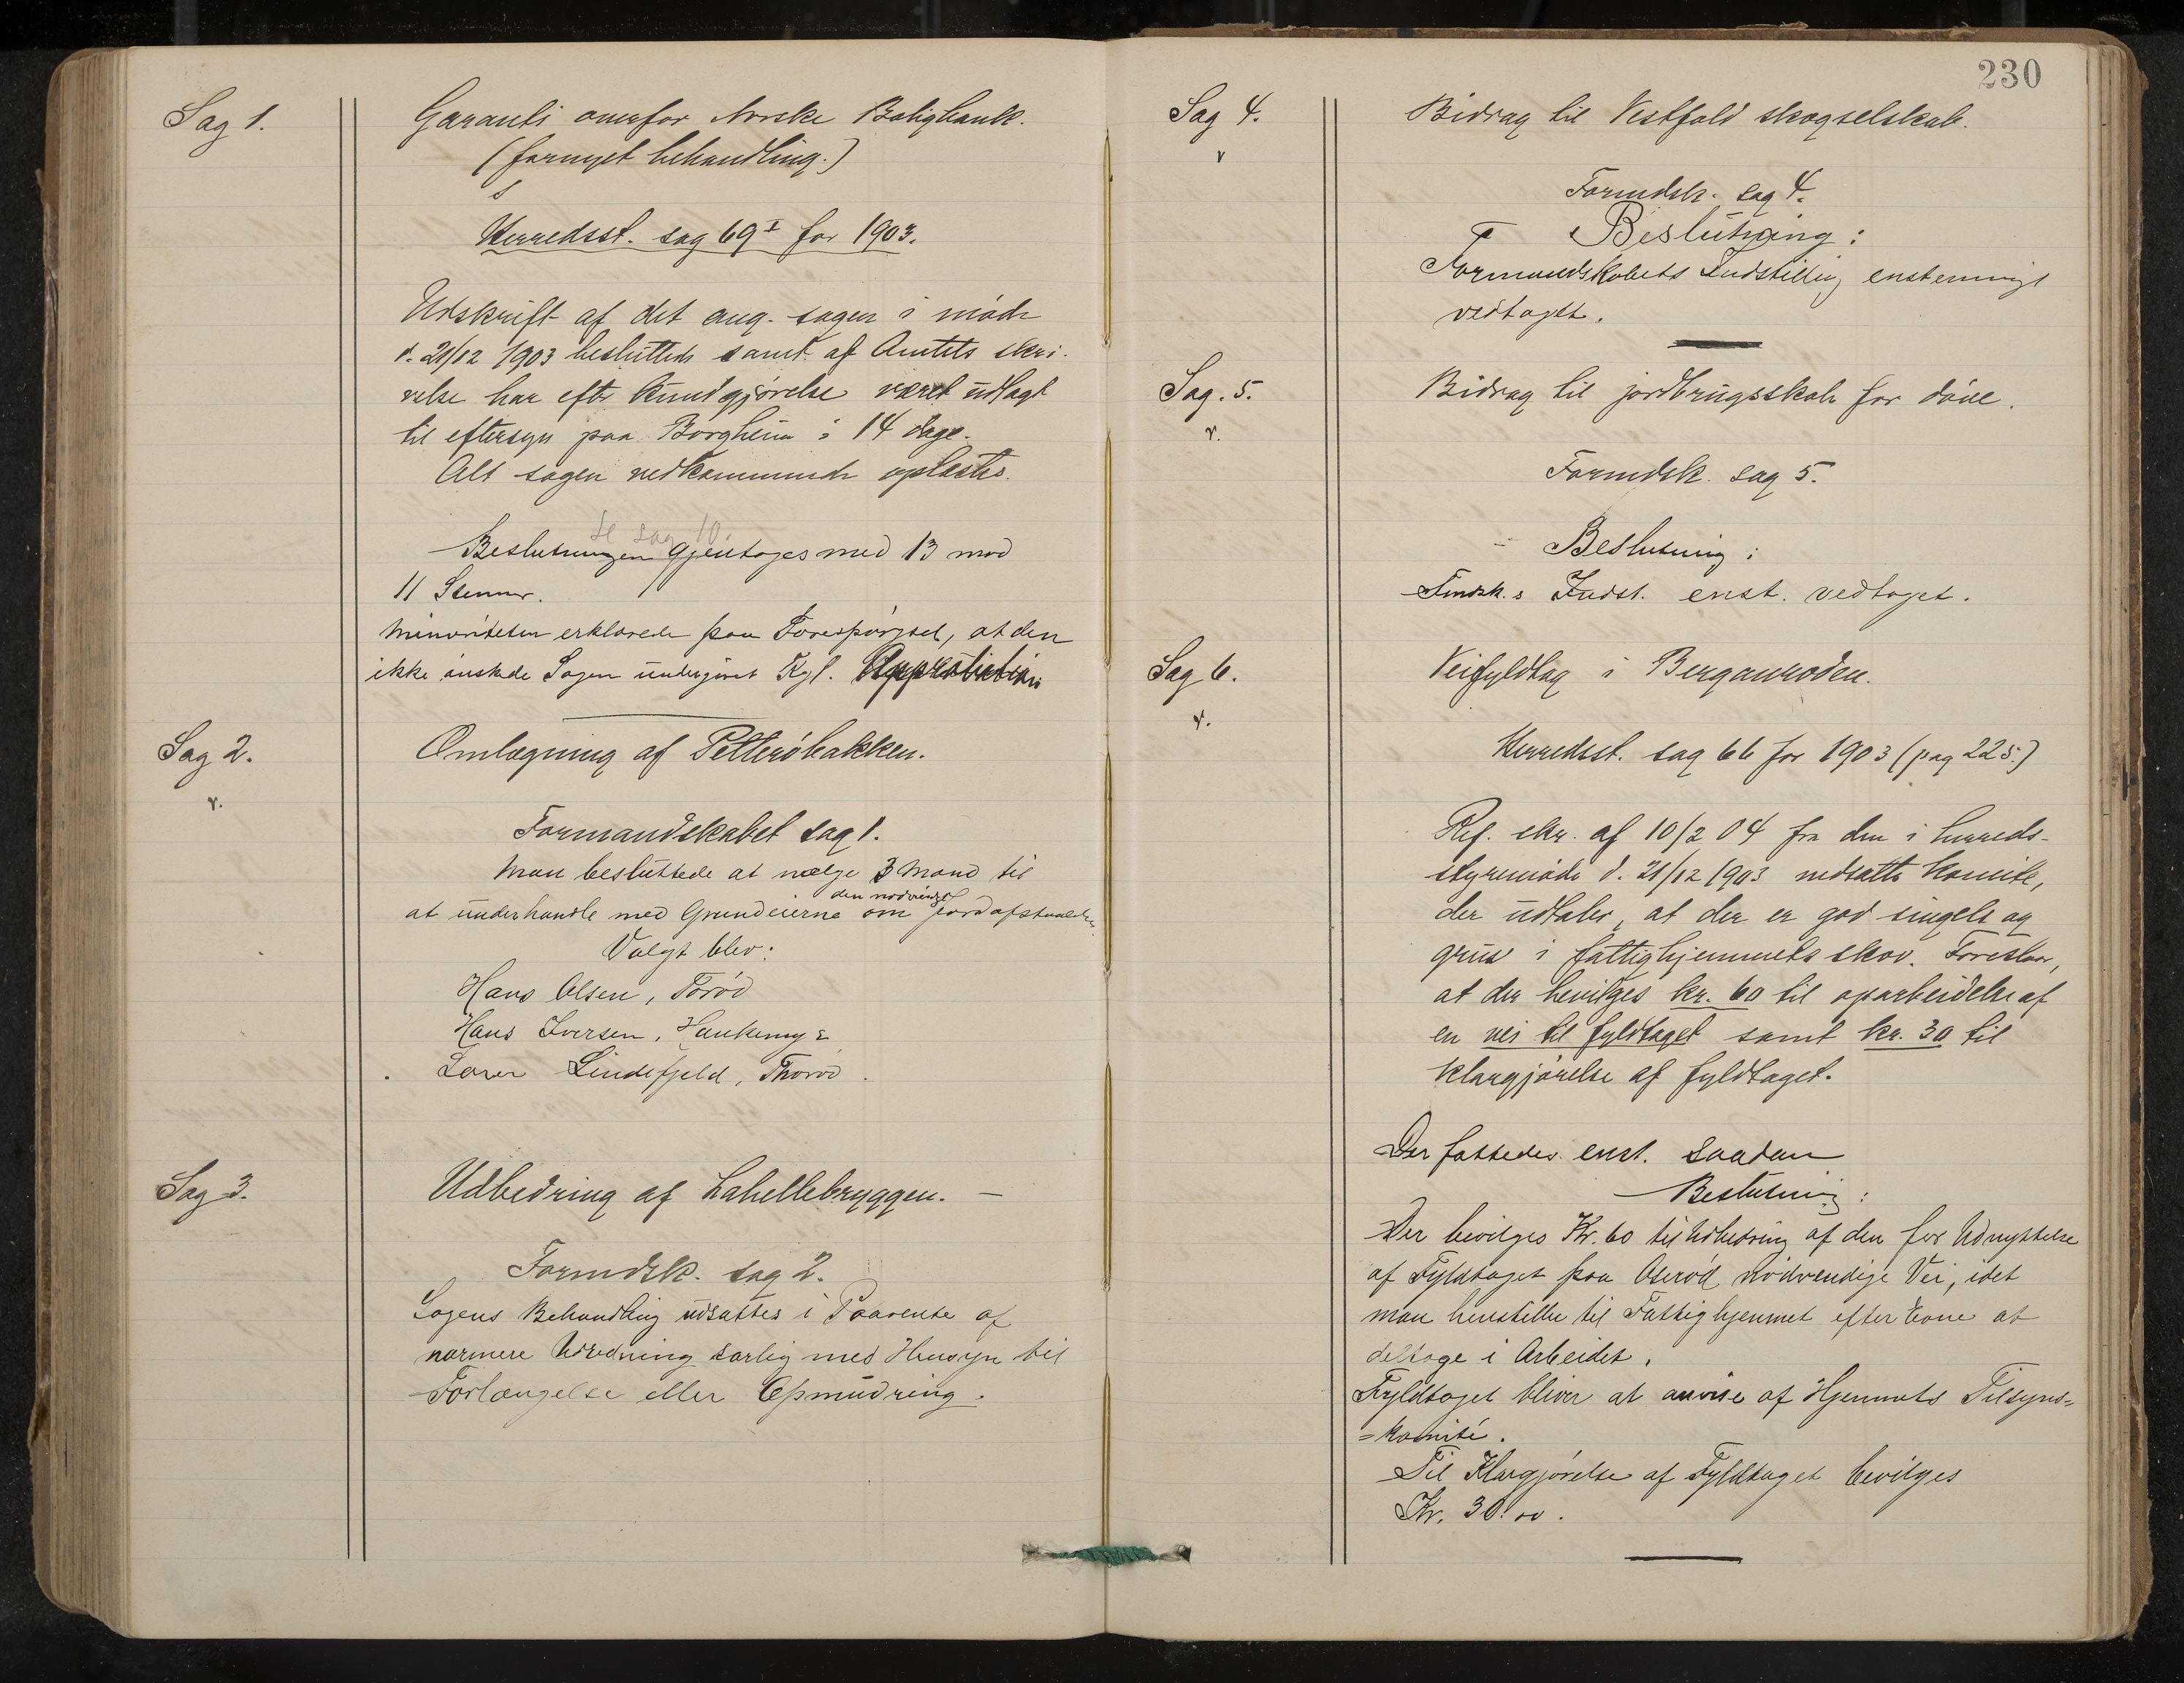 Sag 1.
Garanti overfor Norske Boligbank.
(fornyet behandling.)
Herredsst. sag 69 I for 1903.
Udskrift af det ang. sagen i møde
d. 21/12 1903 besluttede samt af Amtets skri-
velse har efter kundgjørelse været udlagt
til eftersyn paa Borgheim i 14 dage.
Alt sagen vedkommende oplæstes.
Se sag 10.
Beslutningen gjentages med 13 mod
11 Stemmer.
Minoriteten erklærede paa Forespørgsel, at den
ikke ønskede Sagen undergivet Kgl. Approbation
Sag 2.
v.
Omlægning af Petterøbakken.
Formandskabet sag 1.
Man besluttede at vælge 3 Mand til
den nødvendige
at underhandle med Grundeierne om Jordafstaaelse.
Valgt blev:
Hans Olsen, Torød
Hans Iversen, Haukemyr
Lindefjeld, Thorød.
Sag 3.
Udbedring af Lahellebryggen. -
Formdsk. sag 2.
Sagens Behandling udsattes i Paavente af
nærmere Udredning særlig med Hensyn til
Forlængelse eller Opmudring.
230
Sag 4.
v
Bidrag til Vestfold skogselskab.
Formdsk. sag 4.
Beslutning:
Formandskabets Indstilling enstemmigt
vedtaget.
Sag. 5.
v.
Bidrag til jordbrugsskole for døve.
Formdsk. sag 5.
Beslutning:
Fmdsk.s Indst. enst. vedtaget.
Sag 6.
v.
Veifyldtag i Berganroden.
Herredsst. sag 66 for 1903 (pag 225.)
Ref. skr. af 10/2 04 fra den i herreds-
styremøde d. 21/12 1903 nedsatte komite,
der udtaler, at der er god singels og
grus i fattighjemmets skov. Foreslaar,
at der bevilges kr. 60 til oparbeidelse af
en vei til fyldtaget samt kr. 30 til
klargjørelse af fyldtaget.
Der fattedes enst. saadan
Beslutning:
Der bevilges Kr. 60 til Udbedring af den for Udnyttelse
af Fyldtaget paa Oserød nødvendige Vei, idet
man henstiller til Fattighjemmet efter Evne at
deltage i Arbeidet.
Fyldtaget bliver at anvise af Hjemmets Tilsyns=
=komité.
Til Klargjørelse af Fyldtaget bevilges
Kr. 30.00.